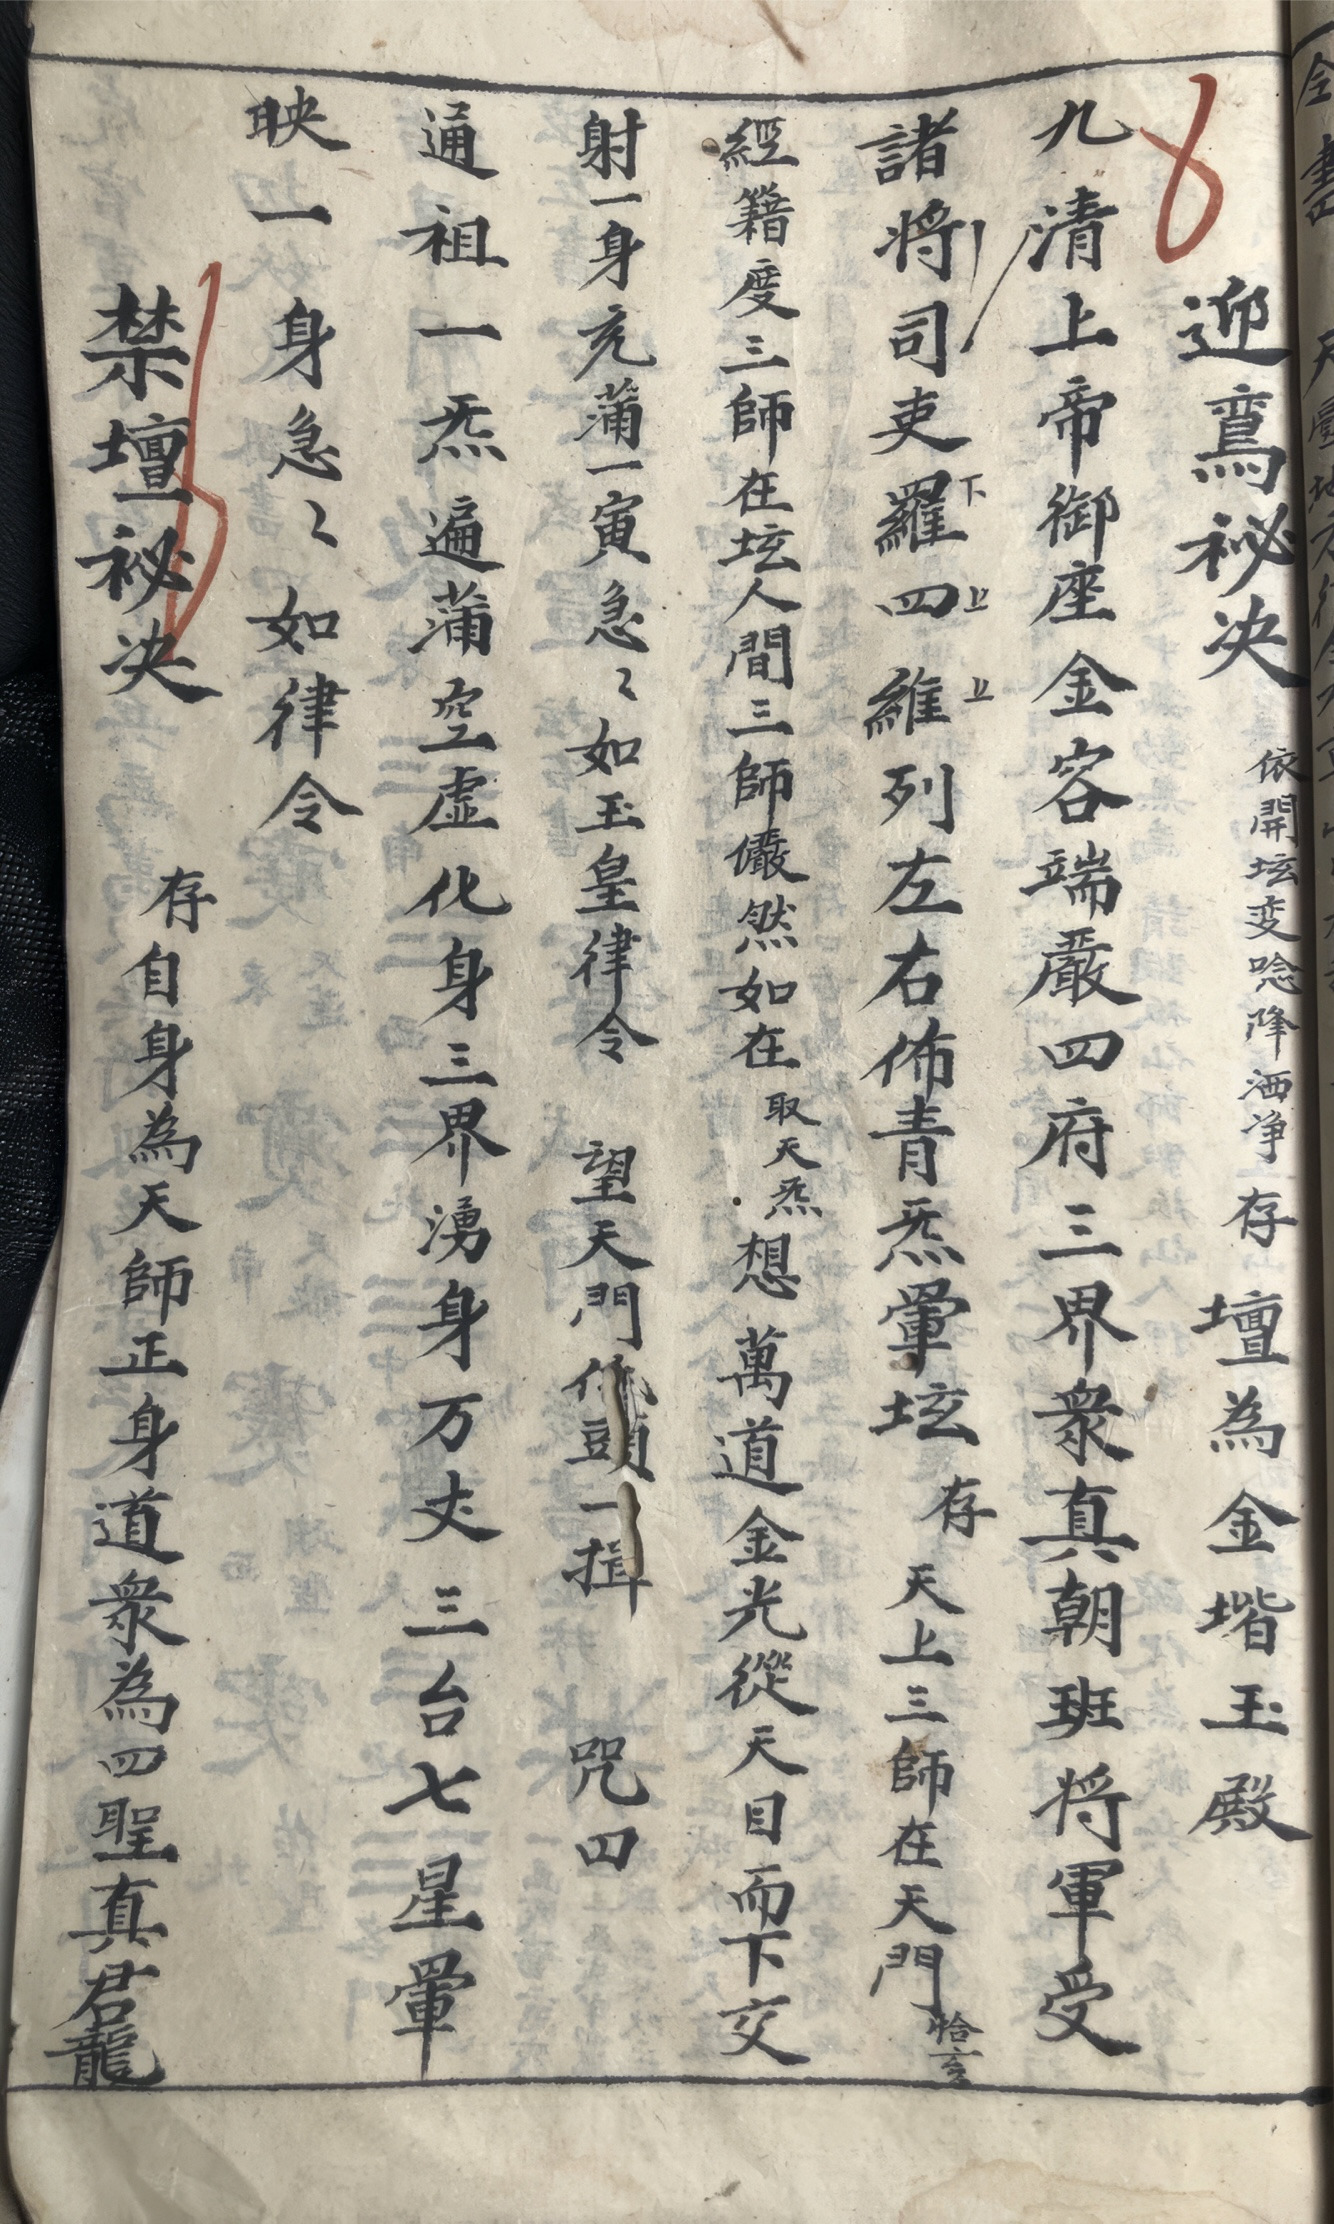 迎鸾秘决 依開坛变唸降洒净 存 壇為金堦玉殿
九清上帝御座金容端嚴四府三界衆真朝班将軍受
諸将司吏羅四維列左右佈青炁罩坛 存 天上三師在天門 恰亥
下 上 上
經籍度三師在坛人間三師儼然如在 取天炁 想萬道金光從天目而下交
射一身充蒲一寅急〻如玉皇律令 望天門 頭一揖 咒曰
通祖一炁遍蒲空虚化身三界湧身万丈三台七星罩
映一身急〻如律令
禁壇秘决 存自身為天師正身道衆為四聖真君龍